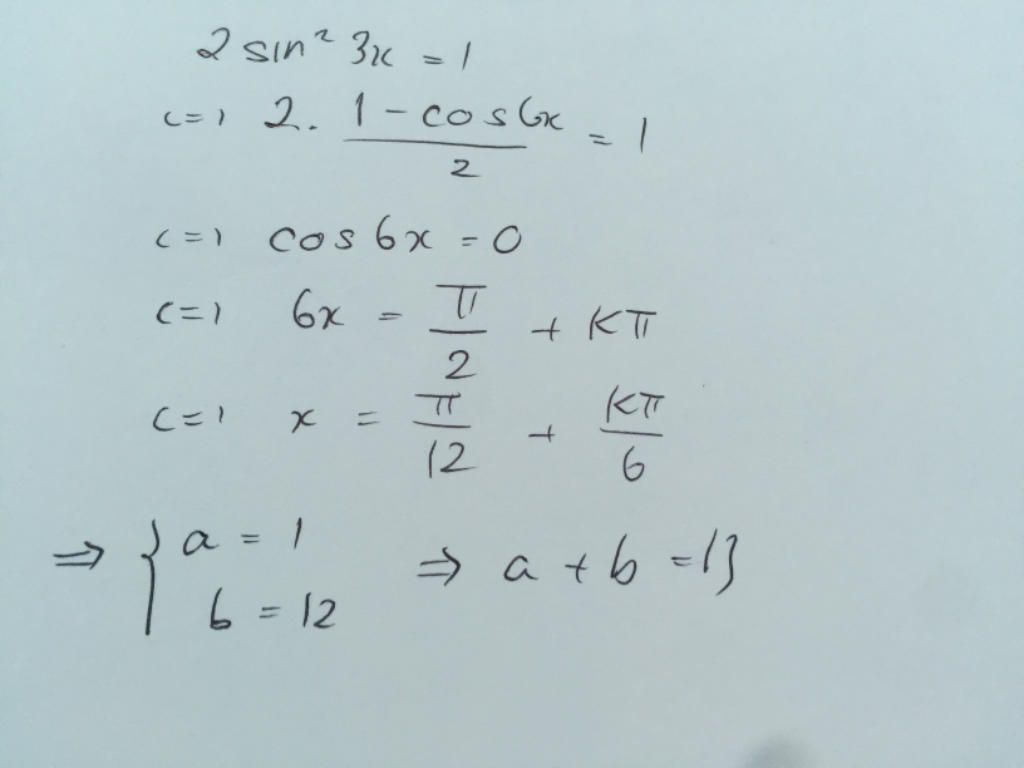 2 sin² 3x = 1
<=> 2. (1 - cos6x)/2 = 1
<=> cos 6x = 0
<=> 6x = π/2 + Kπ
<=> x = π/12 + Kπ/6
⇒ { a = 1 ⇒ a + b = 13
b = 12